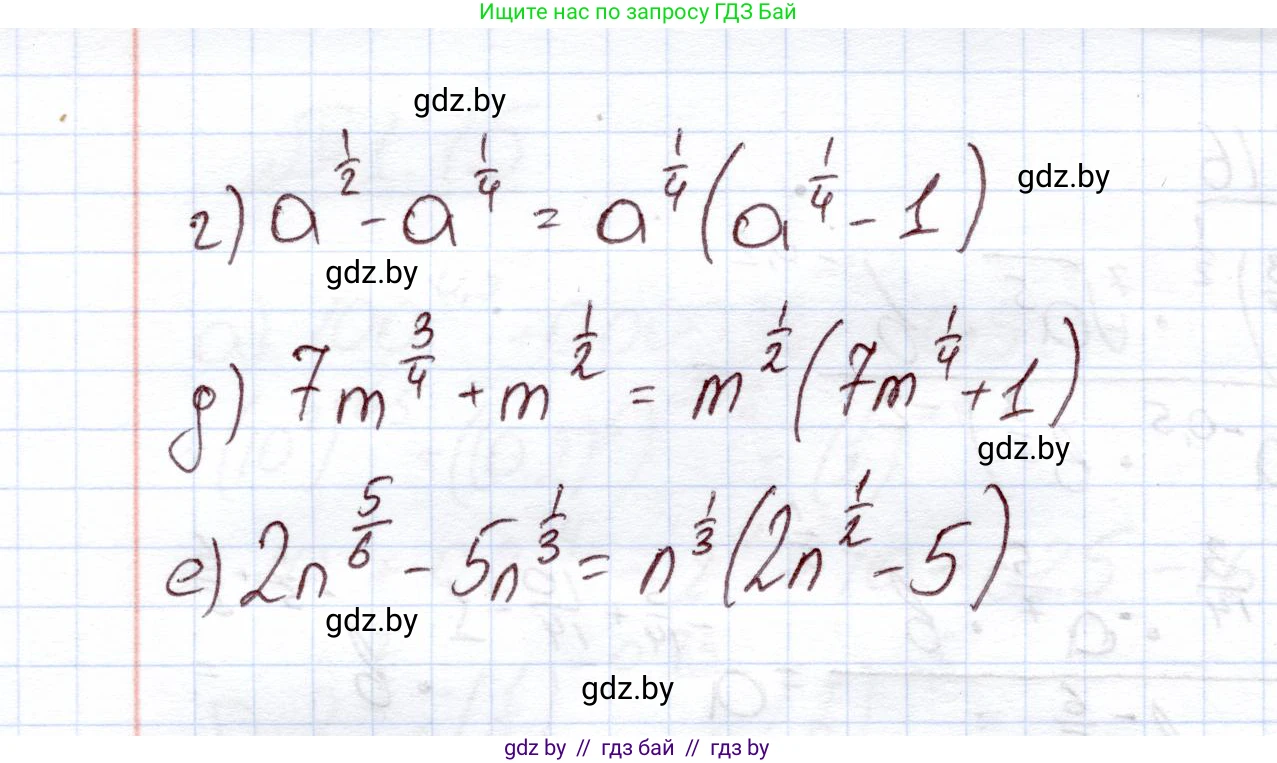 Ищите нас по запросу ГДЗ Бай
gdz.by
г) a^{1/2} - a^{1/4} = a^{1/4}(a^{1/4} - 1)
gdz.by
gdz.by
д) 7m^{3/4} + m^{1/2} = m^{1/2}(7m^{1/4} + 1)
gdz.by
е) 2n^{5/6} - 5n^{1/3} = n^{1/3}(2n^{1/2} - 5)
gdz.by
gdz.by
gdz by // гдз бай // гдз by